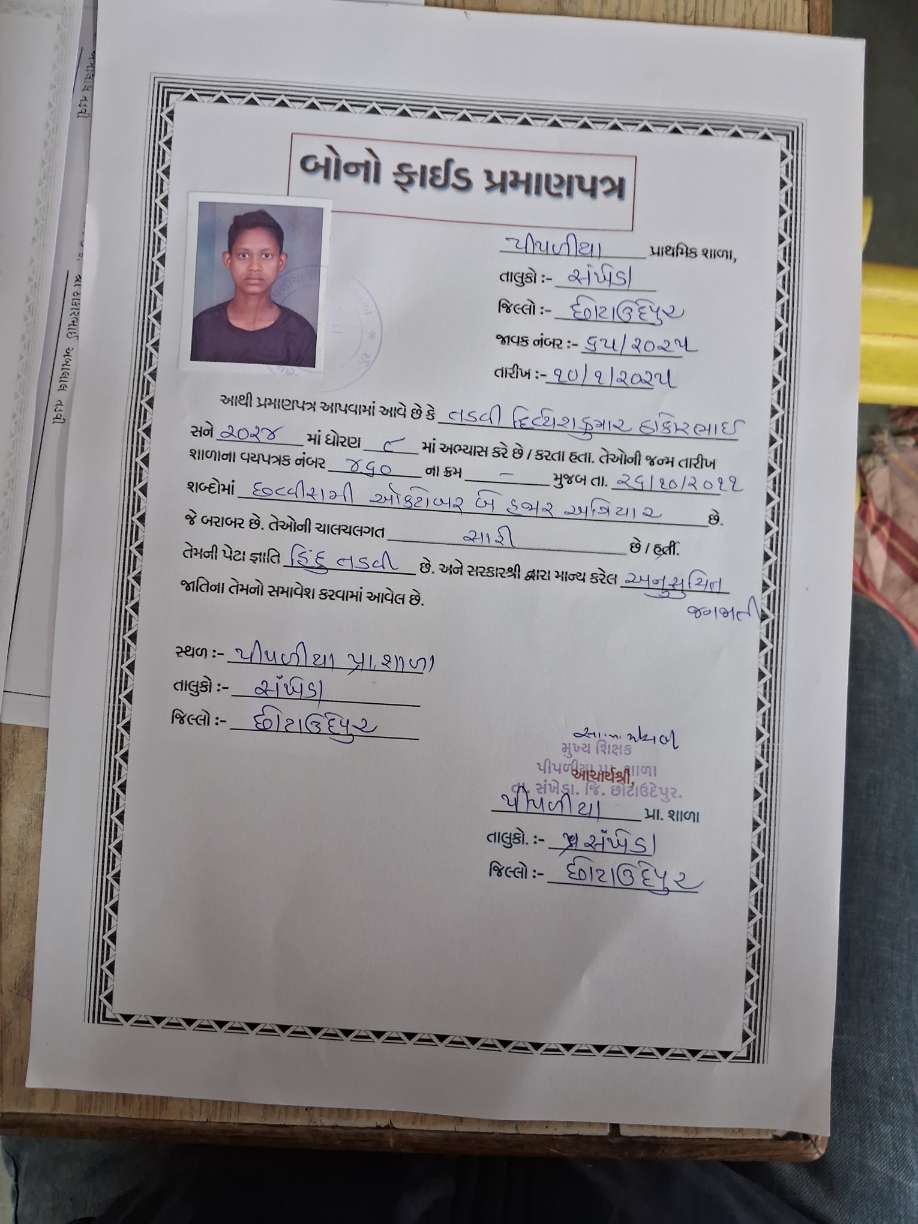 બોનો ફાઈડ પ્રમાણપત્ર
પીપળીયા પ્રાથમિક શાળા,
તાલુકો :- સંખેડા
જિલ્લો :- છોટાઉદેપુર
જાવક નંબર :- ૬૫/૨૦૨૫
તારીખ :- ૧૦/૧/૨૦૨૫
આથી પ્રમાણપત્ર આપવામાં આવે છે કે તડવી દિવ્યેશકુમાર ઠાકોરભાઈ
સને ૨૦૨૪ માં ધોરણ ૮ માં અભ્યાસ કરે છે / કરતા હતા. તેઓની જન્મ તારીખ
શાળાના વયપત્રક નંબર ૪૬૦ ના ક્રમ - મુજબ તા. ૨૬/૧૦/૨૦૧૧
શબ્દોમાં છવ્વીસમી ઓક્ટોબર બે હજાર અગિયાર છે.
જે બરાબર છે. તેઓની ચાલચલગત સારી છે / હતીં.
તેમની પેટા જ્ઞાતિ હિંદુ તડવી છે. અને સરકારશ્રી દ્વારા માન્ય કરેલ અનુસુચિત
જનજાતી
જાતિના તેમનો સમાવેશ કરવામાં આવેલ છે.
સ્થળ :- પીપળીયા પ્રા.શાળા
તાલુકો :- સંખેડા
જિલ્લો :- છોટાઉદેપુર
મુખ્ય શિક્ષક
પીપળીયા પ્રા. શાળા
આચાર્યશ્રી,
તા. સંખેડા. જિ. છોટાઉદેપુર.
પીપળીયા પ્રા. શાળા
તાલુકો. :- સંખેડા
જિલ્લો :- છોટાઉદેપુર